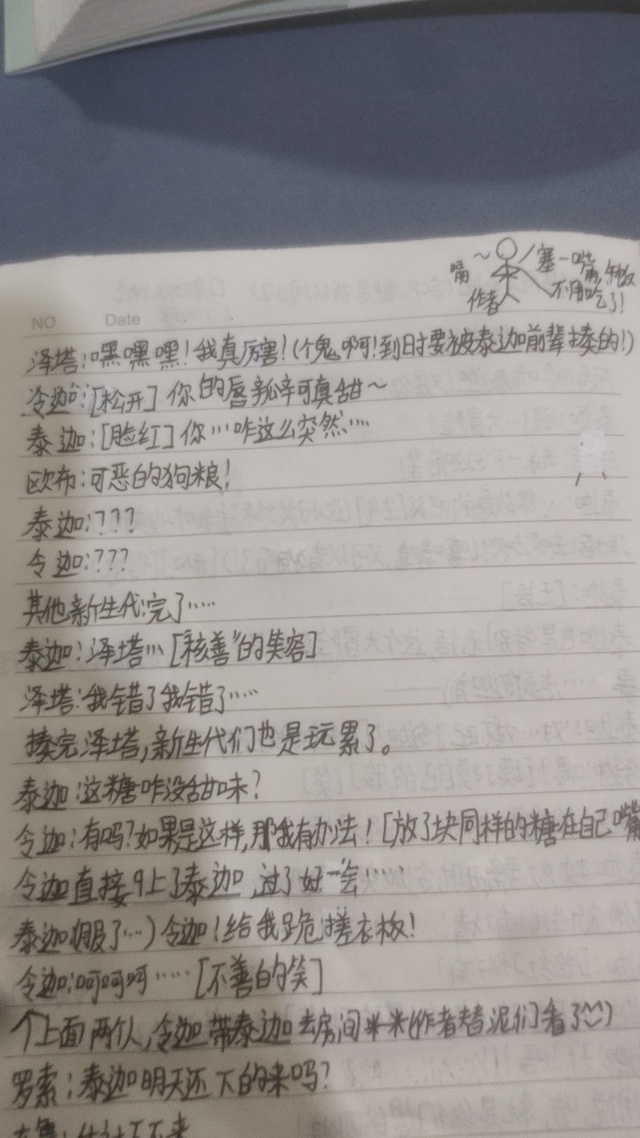 嘴~
塞一嘴，年饭
作者
不用吃了！
NO Date
泽塔：嘿嘿嘿！我真厉害！（个鬼啊！到时要被泰迦前辈揍的！）
令迦：[松开] 你的唇瓣可真甜~
泰迦：[脸红] 你……咋这么突然……
欧布：可恶的狗粮！
泰迦：？？？
令迦：？？？
其他新生代：完了……
泰迦：泽塔…[“核善”的笑容]
泽塔：我错了我错了……
揍完泽塔，新生代们也是玩累了。
泰迦：这糖咋没甜味？
令迦：有吗？如果是这样，那我有办法！[放了块同样的糖在自己嘴
令迦直接q上了泰迦，过了好一会……
泰迦（服了…）令迦！给我跪搓衣板！
令迦：呵呵呵……[不善的笑]
个上面两个人，令迦带泰迦去房间**（作者替泥们看了）
罗索：泰迦明天还下的来吗？